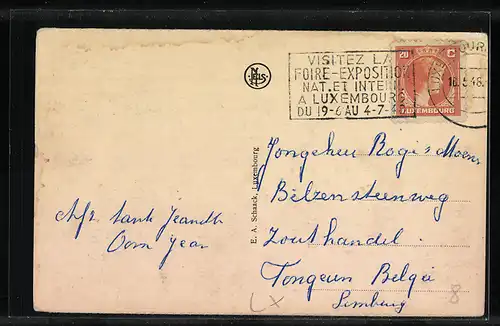 VISITEZ LA
FOIRE-EXPOSITION
NAT. ET INTER
A LUXEMBOURG
DU 19-6 AU 4-7-
20 C
LUXEMBOURG
18.5.48.
NELS
E. A. Schaack, Luxembourg
Afz. tante Jeanette
Oom Jean
Jongeheer Rogi Moens
Bilzensteenweg
Zouthandel
Tongeren België
Limburg
8